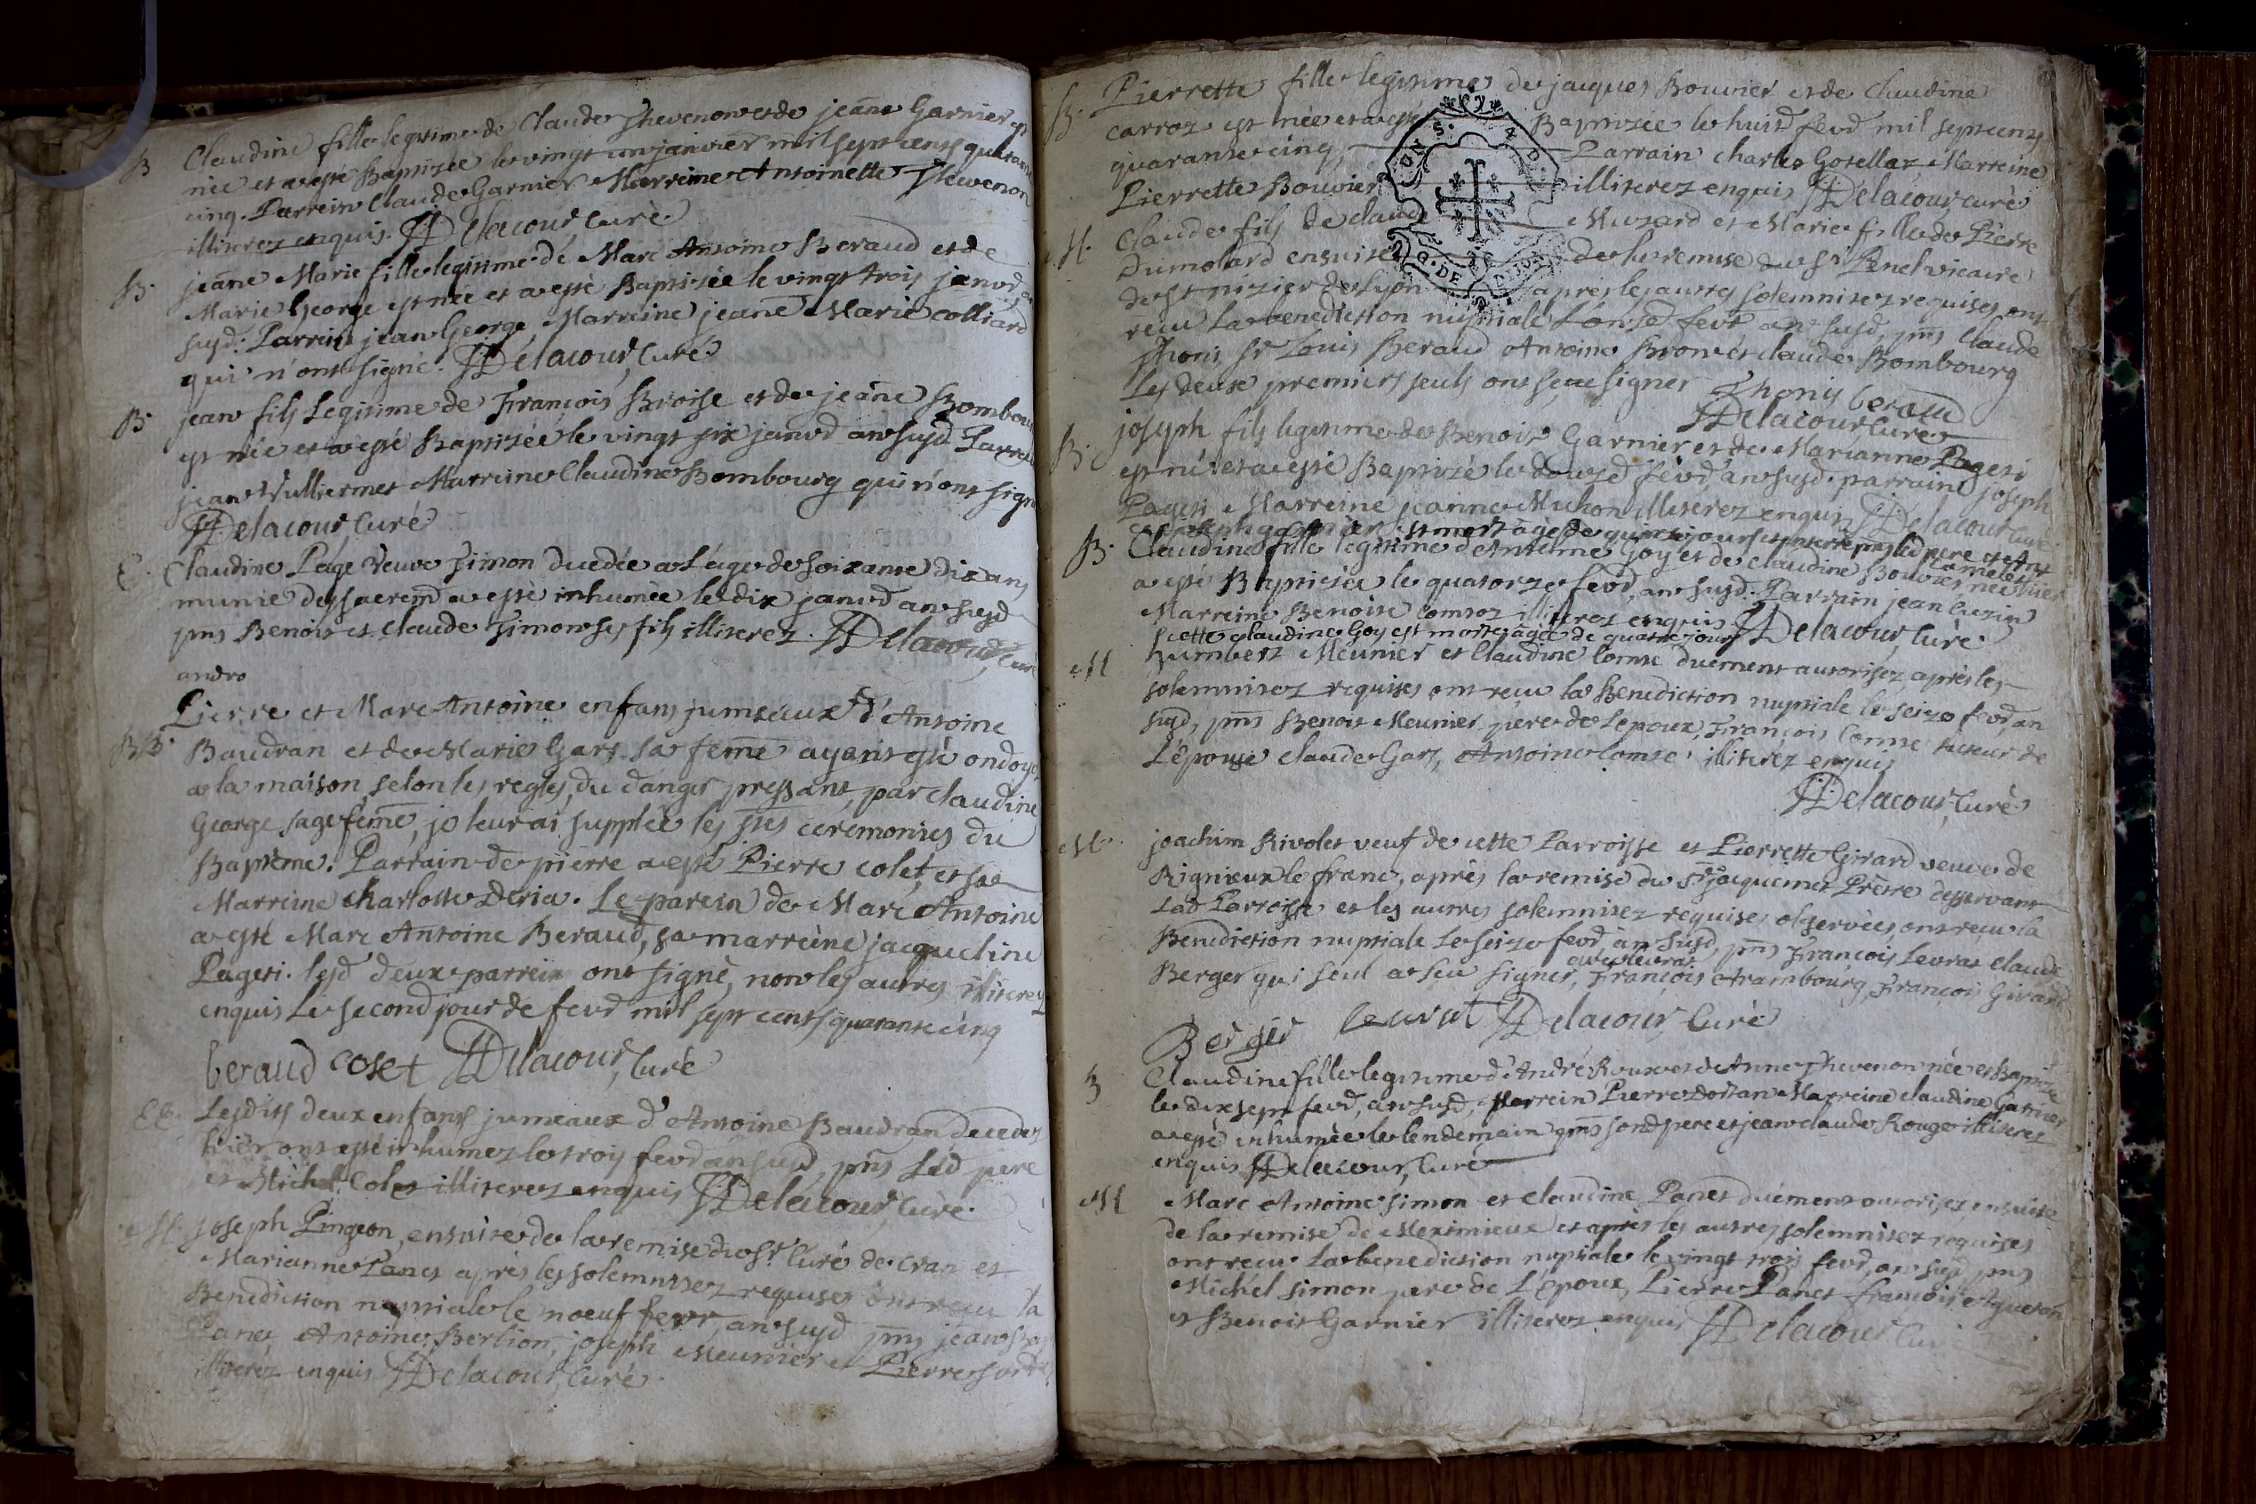 B Claudine fille legitime de Claude Thevenon et de jeane Garnier
née et a esté Baptisée le vingt un janvier mil sept cents quarante
cinq. Parrein Claude Garnier Marreine Antoinette Thevenon
illiterez enquis. Delacour, Curé.
B. jeane Marie fille legitime de Marc Antoine Beraud et de
Marie George est née et a esté Baptisée le vingt trois janvd an
susd. Parrein jean George, Marreine jeane Marie Colliard
qui n'ont signé. Delacour, Curé.
B. jean fils Legitime de François Broise et de jeane Bombourg
est née et a esté Baptizéé le vingt six janvd an susd Parrein
jean Vulliermet Marreine Claudine Bombourg qui n'ont signé
Delacour, Curé
E. Claudine Page Veuve Simon ducedée a L'age de soixante dix ans
munie des sacremd a esté inhumée le dix janvd an susd
pns Benoit et Claude Simon ses fils illiterez. Delacour, Curé
andro
Pierre et Marc Antoine enfans jumeaux d'Antoine
BB. Baudran et de Marie Gars sa feme ayant esté ondoyé
a la maison, selon les regles, du danger pressant, par Claudine
George sage feme, je leur ai supplée les stes ceremonies du
Baptême. Parrain de pierre a esté Pierre colet, et sa
Marreine Charlotte Deria. Le parein de Marc Antoine
a esté Marc Antoine Beraud, sa marreine jacqueline
Pageti. lesd deux parrein ont signé, non les autres illiterez
enquis Le second jour de fevd mil sept cents quarante cinq
beraud colet Delacour, Curé
EE. Lesdits deux enfans jumeaux d'Antoine Baudran decedez
hier ont esté inhumez le trois fevd an susd, pns Led pere
et Michel Colet illiterez enquis Delacour, Curé.
M. joseph Pingeon, ensuite de la remise du sr Curé de Cran et
Marianne Panet après les solemnitez requises ont reçu la
Benediction nuptiale le noeuf fevr, an susd pns jean
Panet Antoine Berlion, joseph Meunier et Pierre
illiterez enquis Delacour, Curé.
B. Pierrette fille legitime de jacques Bouvier et de Claudine
carroz est née et a esté Baptizée le huit fevd mil sept cents
quarante cinq, Parrain Charles Gotellaz, Marreine
Pierrette Bouvier illiterez enquis Delacour, curé
M. Claude fils de claude Muzard et Marie fille de Pierre
Dumolard ensuite de la remise du sr Penet vicaire
de st nizier de Lyon après les autres solemnitez requises ont
reçu La benediction nuptiale L'onze fevr an susd, pns Claude
Thonis, sr Louis Beraud Antoine Bron et Claude Bombourg
Les deux premiers seuls ont sceu signer Thonis beraud
Delacour Curé
B. joseph fils legitime de Benoit Garnier et de Marianne Pageti
est né et a esté Baptizé le douze fevd an susd. parrain joseph
Pageti Marreine jeanne Muhon illiterez enquis Delacour Curé
est mort agé de quinze jours et
B. Claudine fille legitime d'Antelme Goy et de Claudine Bouvier née hier
a esté Baptisée le quatorze fevd, an susd. Parrain jean Cuzin
Marreine Benoite Comtoz illiterez enquis Delacour, Curé.
cette Claudine Goy est morte agée de quatre jours
M humbert Meunier et Claudine Comte duement autorisez après les
solemnitez requises ont reçu la Benediction nuptiale le seize fevd, an
susd, pns Benoit Meunier, pere de L'epoux, François Comte tuteur de
L'épouse Claude Gars, Antoine Comte illiterez enquis
Delacour, Curé.
M. joachim Rivolet veuf de cette Parroisse et Pierrette Girard veuve de
Rignieux le franc, après la remise du Sr jacquemet Prêtre desservant
Lad Parroisse et les autres solemnitez requises observées, ont reçu la
Benediction nuptiale Le seize fevd an susd, pns François Levrat Claude
avec levrat
Berger qui seul a sceu signer, François Arambourg, François Girard
Berger Levrat Delacour, Curé
B Claudine fille legitime d'André Roux et d'Anne Thevenon née et Baptizée
le dix sept fevd, an susd, Parrein Pierre Dortan Marreine claudine Garnier
a esté inhumée le lendemain pns sond pere et jean claude Rouge illiterez
enquis Delacour, Curé
M Marc Antoine Simon et Claudine Panet duement autorisez ensuite
de la remise de Meximieux et après les autres solemnitez requises
ont reçu La benediction nuptiale le vingt trois fevd, an susd pns
Michel Simon pere de L'epoux, Pierre Panet françois Agueran
et Benoit Garnier illiterez enquis Delacour Curé